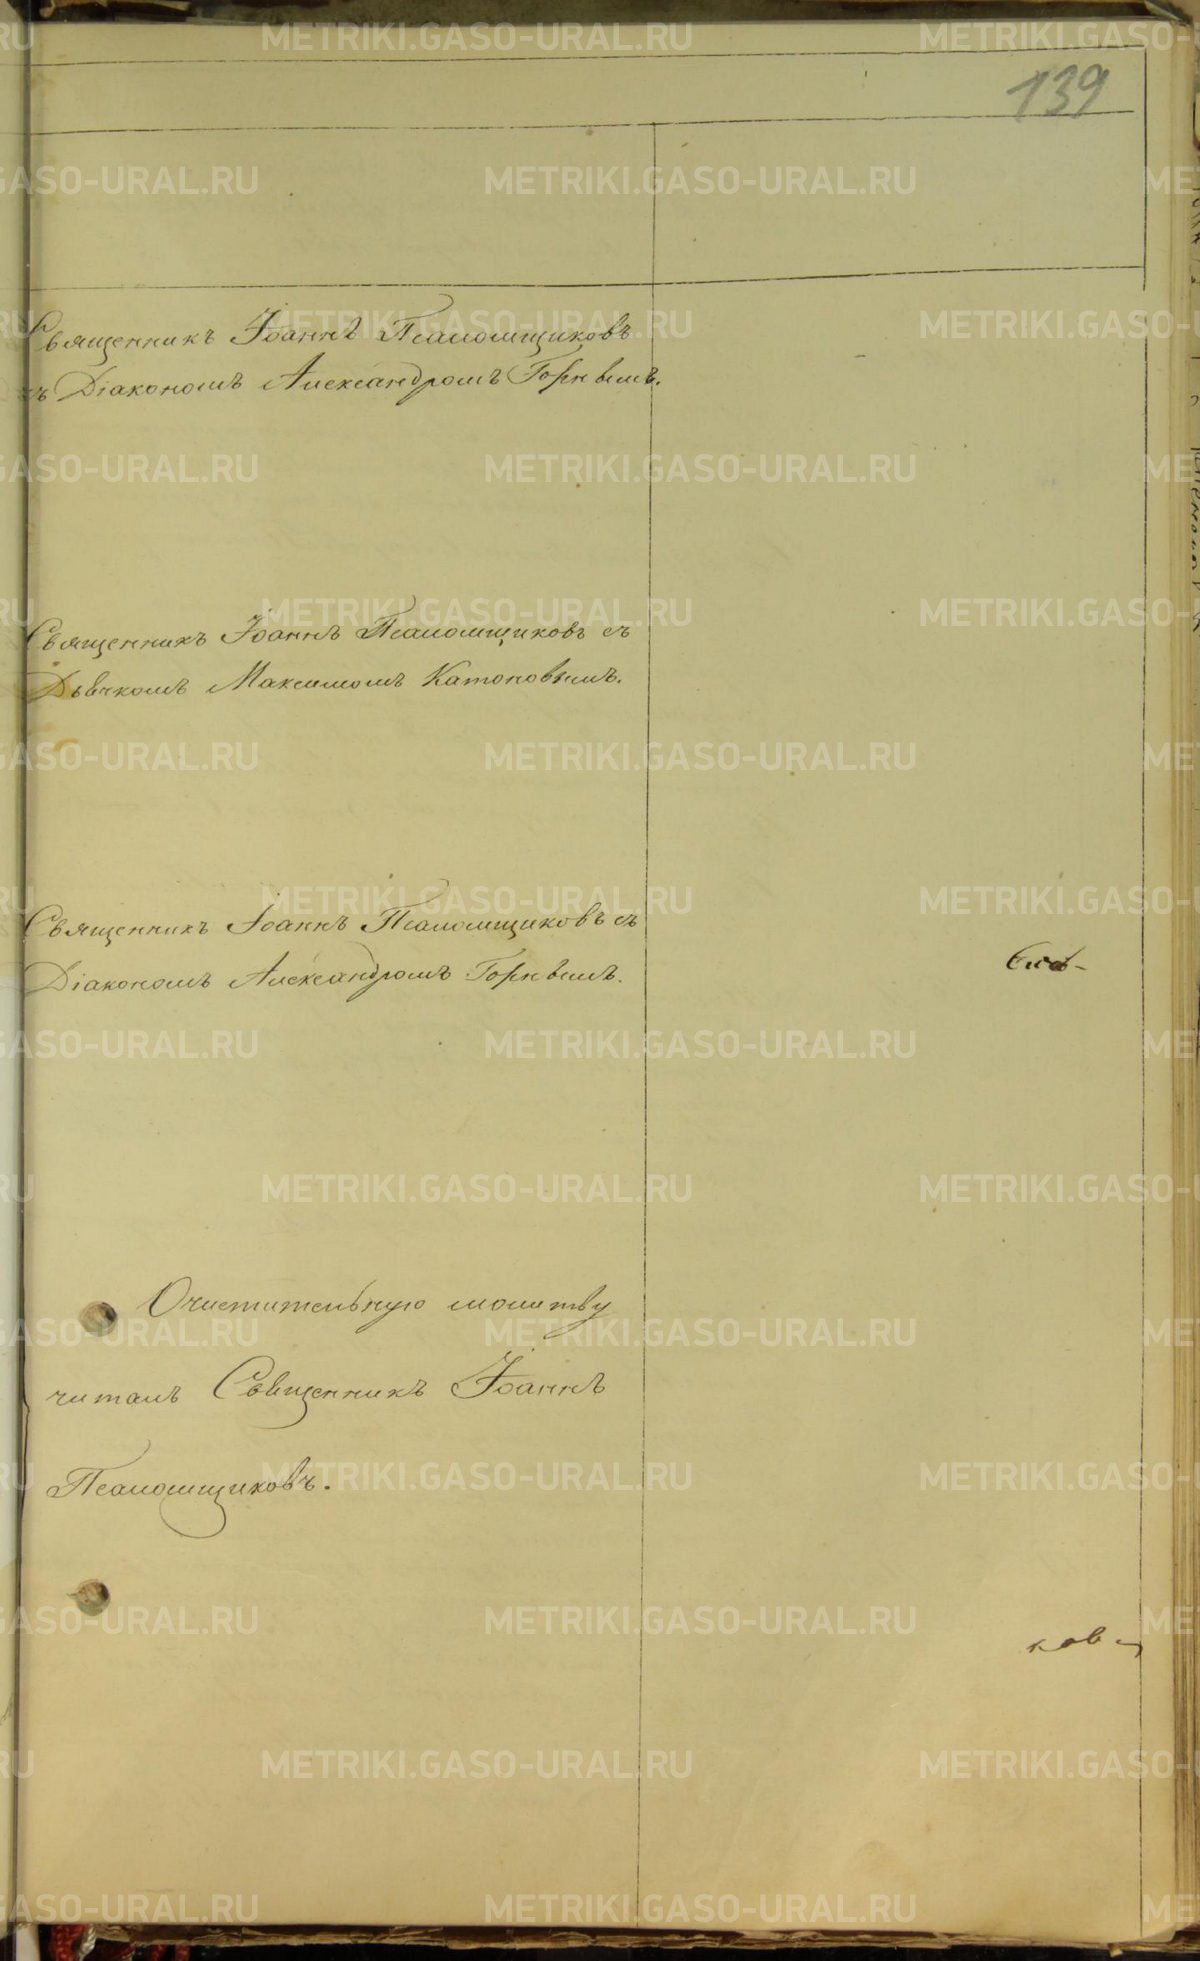 139
Священникъ Іоаннъ Псаломщиковъ
съ Діакономъ Александромъ Горнымъ.
Священникъ Іоаннъ Псаломщиковъ съ
Дьячкомъ Максимомъ Катоновымъ.
Священникъ Іоаннъ Псаломщиковъ съ
Діакономъ Александромъ Горнымъ.
Очистительную молитву
читалъ Священникъ Іоаннъ
Псаломщиковъ.
ков
METRIKI.GASO-URAL.RU